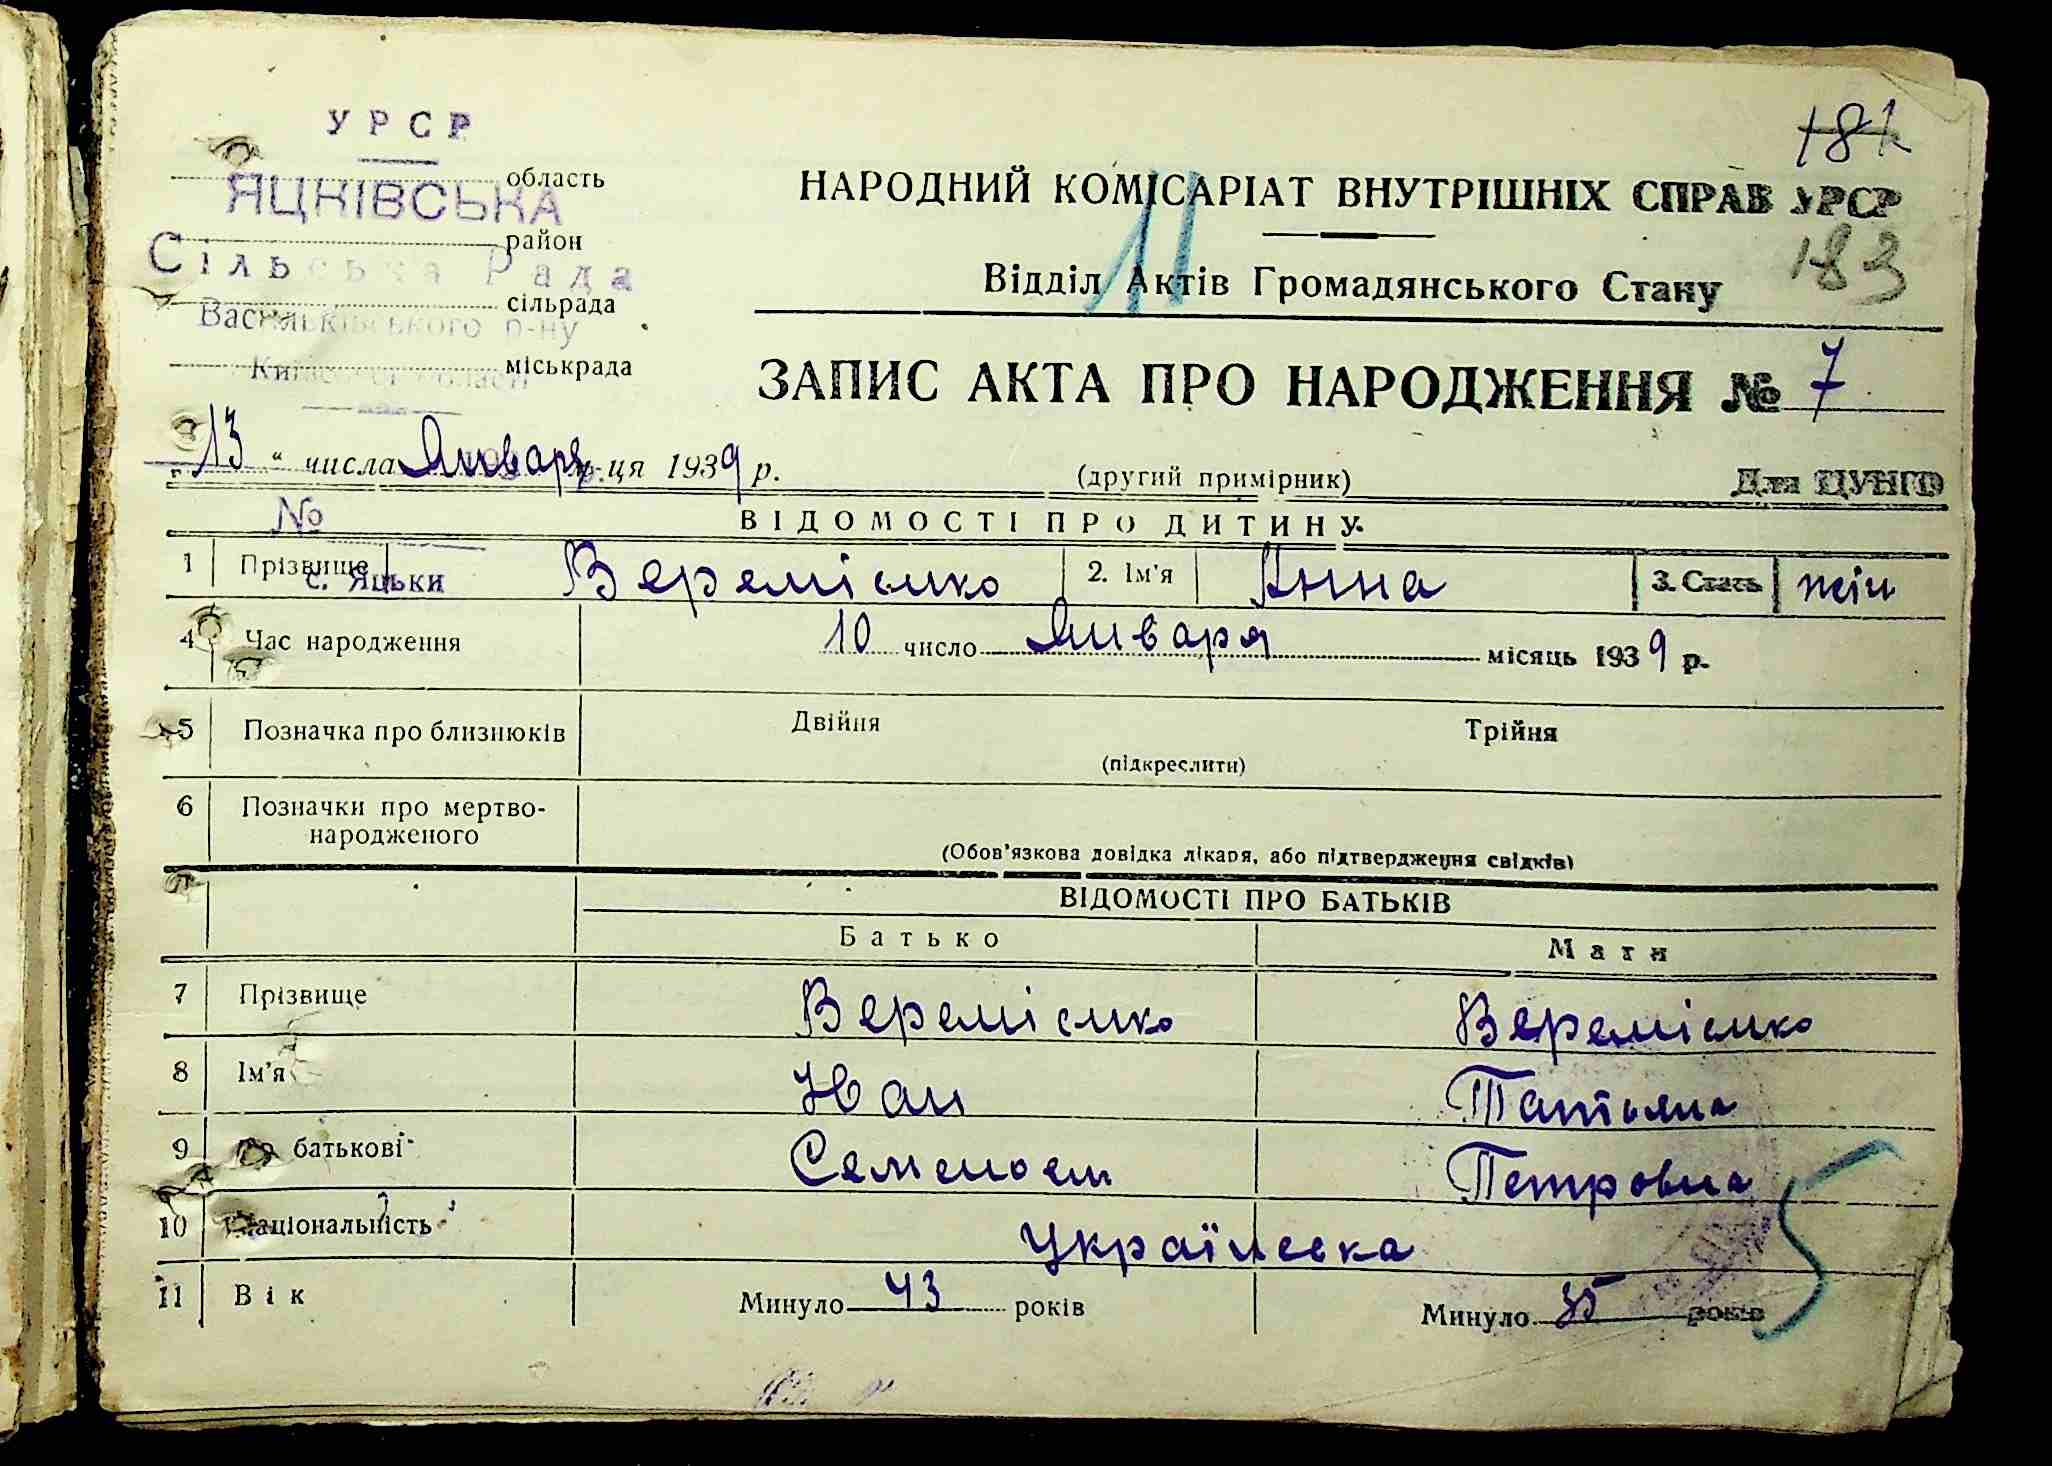 УРСР
181
область
ЯЦКІВСЬКА
НАРОДНИЙ КОМІСАРІАТ ВНУТРІШНІХ СПРАВ УРСР
район
Сільська Рада
183
11
Відділ Актів Громадянського Стану
сільрада
Васильківського р-ну
міськрада
Київської області
ЗАПИС АКТА ПРО НАРОДЖЕННЯ № 7
"13" числа Января м-ця 1939 р.
(другий примірник)
Для ЦУНГО
№
ВІДОМОСТІ ПРО ДИТИНУ
1 Прізвище Веремієнко 2. Ім'я Анна 3. Стать жін
с. Яцьки
4 Час народження 10 число Января місяць 1939 р.
5 Позначка про близнюків Двійня Трійня
(підкреслити)
6 Позначки про мертво-
народженого
(Обов'язкова довідка лікаря, або підтвердження свідків)
ВІДОМОСТІ ПРО БАТЬКІВ
Батько Мати
7 Прізвище Веремієнко Веремієнко
8 Ім'я Иван Татьяна
9 По батькові Петровна
10 Національність Українська
11 Вік Минуло 43 років Минуло 35 років
5